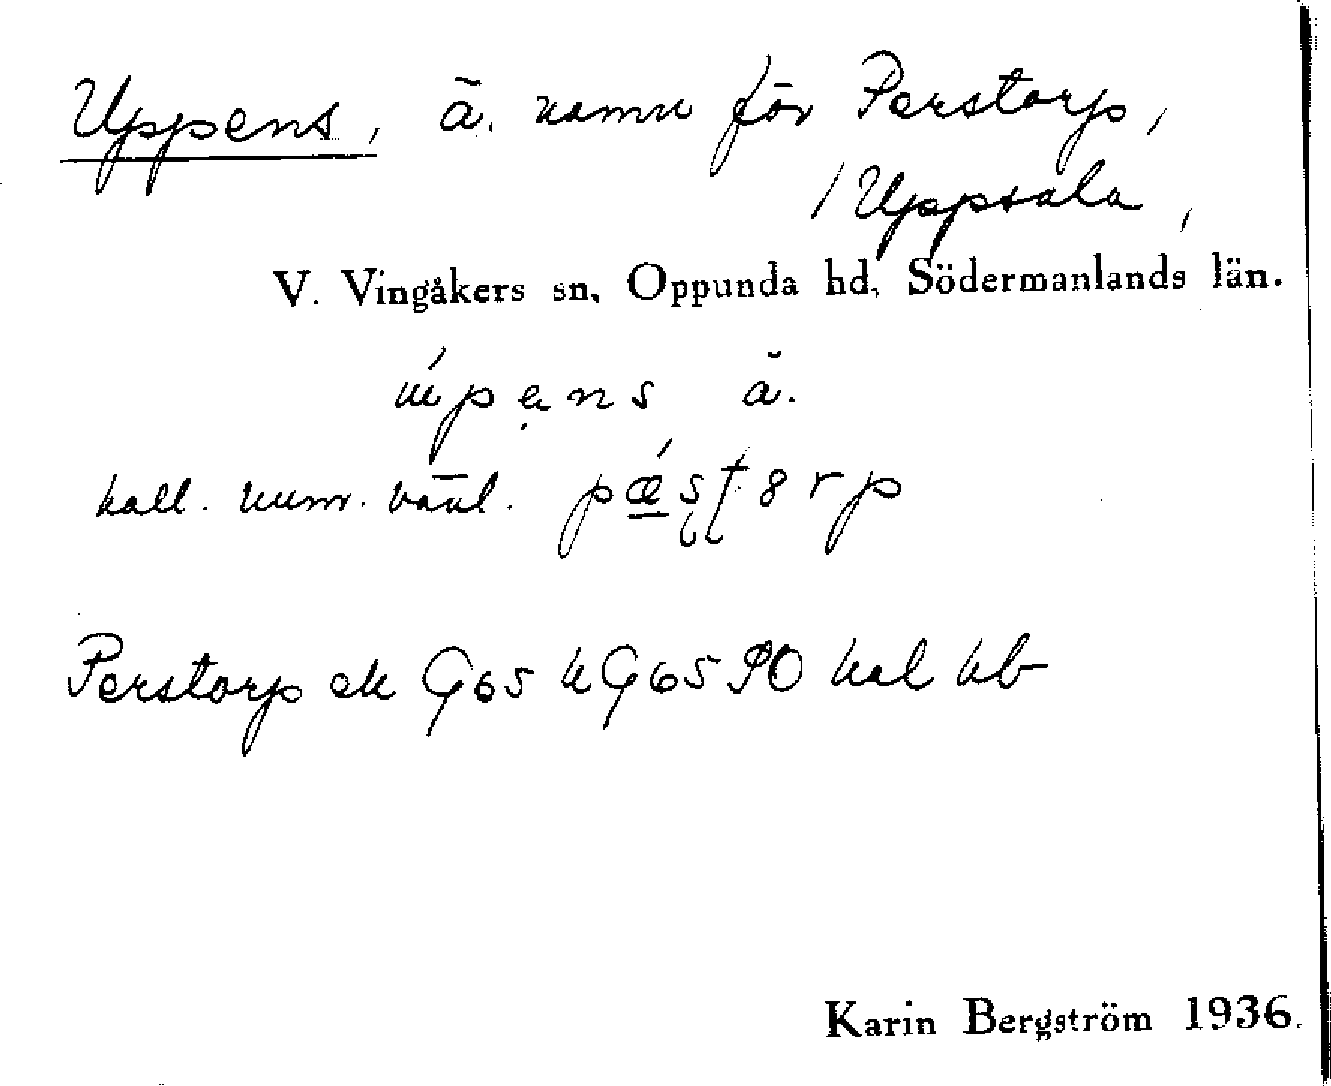 Uppens, ä. namn för Perstorp,
/ Uppsala,
V. Vingåkers sn, Oppunda hd, Södermanlands län.
ä.
kall. num. vanl.
Perstorp ek G65 h G65 PO kal hb
Karin Bergström 1936.